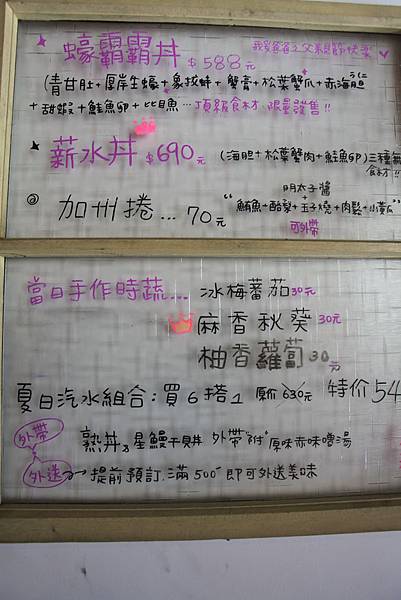 我愛爸爸之父親節快樂
蠔霸霸丼 $588元
(青甘肚+厚岸生蠔+象拔蚌+蟹膏+松葉蟹爪+赤海膽
+甜蝦+鮭魚卵+比目魚…頂級食材.限量發售!!
薪水丼 $690元 (海胆+松葉蟹肉+鮭魚卵)三種無
食材!!
明太子醬
@ 加州捲…70元 "鮪魚+酪梨+玉子燒+肉鬆+小黃瓜"
可外帶
當日手作時蔬… 冰梅蕃茄30元
麻香秋葵 30元
柚香蘿蔔30元
夏日汽水組合:買6搭1 原价630元 特价54
外帶 熟丼及星鰻干貝丼 外帶"附"原味赤味噌湯
外送→提前預訂.滿500即可外送美味